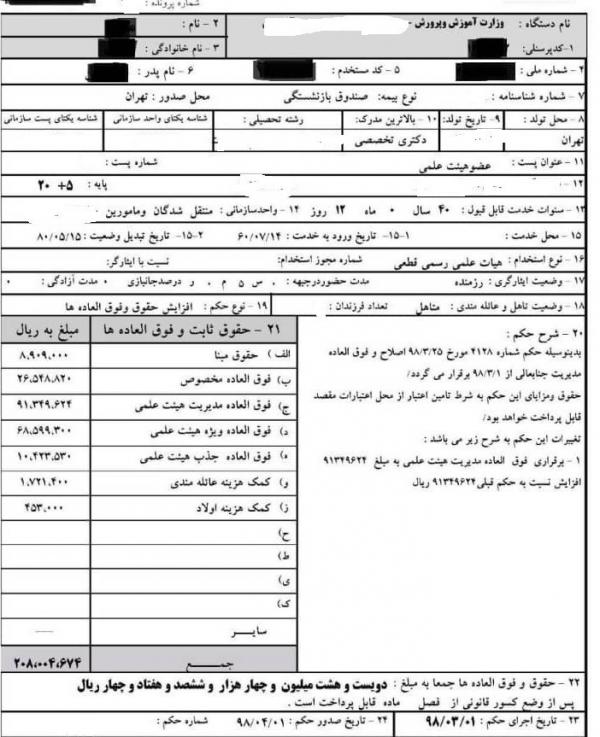 شماره پرونده :
نام دستگاه : وزارت آموزش وپرورش -
۲ - نام :
۱-کدپرسنلی:
۳ - نام خانوادگی :
۴ - شماره ملی :
۵ - کد مستخدم :
۶ - نام پدر :
۷ - شماره شناسنامه : نوع بیمه: صندوق بازنشستگی محل صدور : تهران
۸ - محل تولد : ۹- تاریخ تولد: ۱۰ - بالاترین مدرک: رشته تحصیلی : شناسه یکتای واحد سازمانی شناسه یکتای پست سازمانی
تهران دکتری تخصصی
۱۱ - عنوان پست : عضوهیئت علمی شماره پست :
۱۲ - پایه : ۵+ ۲۰
۱۳ - سنوات خدمت قابل قبول : ۴۰ سال ۰ ماه ۱۲ روز ۱۴ - واحدسازمانی : منتقل شدگان ومامورین
۱۵ - محل خدمت : ۱۵-۱ تاریخ ورود به خدمت : ۶۰/۰۷/۱۴ ۱۵-۲ - تاریخ تبدیل وضعیت : ۸۰/۰۵/۱۵
۱۶ - نوع استخدام : هیات علمی رسمی قطعی شماره مجوز استخدام: نسبت با ایثارگر:
۱۷ - وضعیت ایثارگری : رزمنده مدت حضوردرجبهه : ۰ س ۵ م ۰ ر درصدجانبازی ۰ مدت آزادگی : ۰
۱۸ - وضعیت تاهل و عائله مندی : متاهل تعداد فرزندان : ۱۹ - نوع حکم : افزایش حقوق وفوق العاده ها
۲۰ - شرح حکم :
بدینوسیله حکم شماره ۴۱۲۸ مورخ ۹۸/۳/۲۵ اصلاح و فوق العاده
مدیریت جنابعالی از ۹۸/۳/۱ برقرار می گردد/
حقوق ومزایای این حکم به شرط تامین اعتبار از محل اعتبارات مقصد
قابل پرداخت خواهد بود/
تغییرات این حکم به شرح زیر می باشد :
۱ - برقراری فوق العاده مدیریت هیئت علمی به مبلغ ۹۱۳۴۹۶۲۴
افزایش نسبت به حکم قبلی ۹۱۳۴۹۶۲۴ ریال
۲۱ - حقوق ثابت و فوق العاده ها مبلغ به ریال
الف ) حقوق مبنا ۸,۹۰۹,۰۰۰
ب) فوق العاده مخصوص ۲۶,۵۴۸,۸۲۰
ج) فوق العاده مدیریت هیئت علمی ۹۱,۳۴۹,۶۲۴
د) فوق العاده ویژه هیئت علمی ۶۸,۵۹۹,۳۰۰
ه) فوق العاده جذب هیئت علمی ۱۰,۴۲۳,۵۳۰
و) کمک هزینه عائله مندی ۱,۷۲۱,۴۰۰
ز) کمک هزینه اولاد ۴۵۳,۰۰۰
ح)
ط)
ی)
ک)
سایر ----
جمع ۲۰۸,۰۰۴,۶۷۴
۲۲ - حقوق و فوق العاده ها جمعا به مبلغ : دویست و هشت میلیون و چهار هزار و ششصد و هفتاد و چهار ریال
پس از وضع کسور قانونی از فصل ماده قابل پرداخت است .
۲۳ - تاریخ اجرای حکم : ۹۸/۰۳/۰۱ ۲۴ - تاریخ صدور حکم : ۹۸/۰۴/۰۱ شماره حکم :